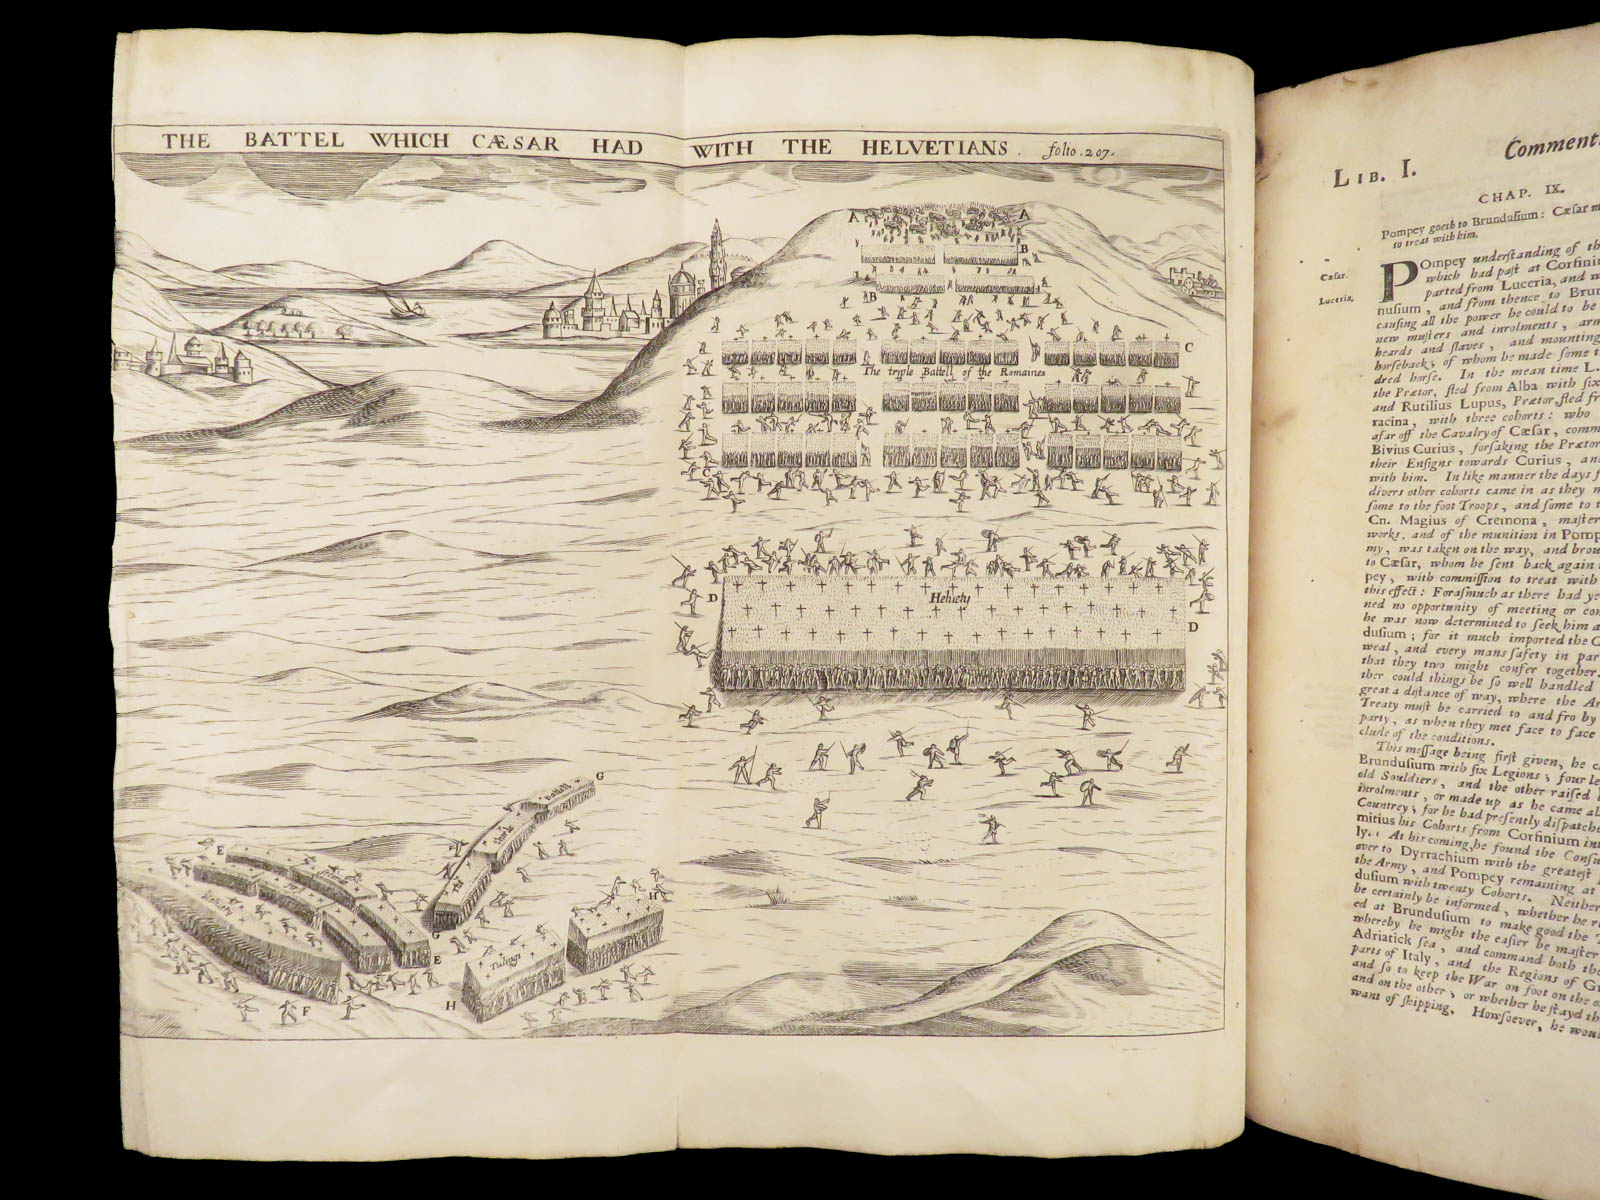 THE BATTEL WHICH CÆSAR HAD WITH THE HELVETIANS. folio. 207.
A A
B
B
C
The triple Battell of the Romaines
C
D Helvety
D
G
Battell
third
The
E
F
G
E
Tulingi
H
H
LIB. I. Comment
CHAP. IX.
Pompey goeth to Brundusium: Cæsar m
to treat with him.
Cæsar.
Luceria.
POmpey understanding of th
which had past at Corfini
parted from Luceria, and
nusium, and from thence to Brun
causing all the power he could to be
new musters and inrolments, arm
heards and slaves, and mounting
horseback; of whom he made some t
dred horse. In the mean time L.
the Prætor, fled from Alba with six
and Rutilius Lupus, Prætor, fled fr
racina, with three cohorts: who
afar off the Cavalry of Cæsar, comm
Bivius Curius, forsaking the Prætor
their Ensigns towards Curius, an
with him. In like manner the days f
divers other cohorts came in as they m
some to the foot Troops, and some to t
Cn. Magius of Cremona, master
works, and of the munition in Pomp
my, was taken on the way, and brou
to Cæsar, whom he sent back again
pey, with commission to treat with
this effect: Forasmuch as there had ye
ned no opportunity of meeting or con
he was now determined to seek him a
dusium; for it much imported the C
weal, and every mans safety in par
that they two might confer together.
ther could things be so well handled
great a distance of way, where the Ar
Treaty must be carried to and fro by
party, as when they met face to face
clude of the conditions.
This message being first given, he c
Brundusium with six Legions; four le
old Souldiers, and the other raised
inrolments, or made up as he came al
Countrey; for he had presently dispatche
mitius his Cohorts from Corfinium in
ly. At his coming, he found the Consu
over to Dyrrachium with the greatest
the Army, and Pompey remaining at
dusium with twenty Cohorts. Neither
be certainly be informed, whether he r
ed at Brundusium to make good the
whereby he might the easier be master
Adriatick sea, and command both the
parts of Italy, and the Regions of G
and so to keep the War on foot on the o
and on the other; or whether he stayd th
want of shipping. Howsoever, he woul